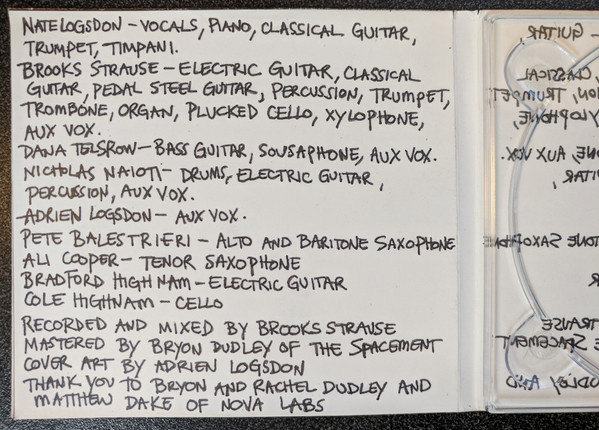 NATE LOGSDON - VOCALS, PIANO, CLASSICAL GUITAR,
TRUMPET, TIMPANI.
BROOKS STRAUSE - ELECTRIC GUITAR, CLASSICAL
GUITAR, PEDAL STEEL GUITAR, PERCUSSION, TRUMPET,
TROMBONE, ORGAN, PLUCKED CELLO, XYLOPHONE,
AUX VOX.
DANA TELSROW - BASS GUITAR, SOUSAPHONE, AUX VOX.
NICHOLAS NAIOTI - DRUMS, ELECTRIC GUITAR,
PERCUSSION, AUX VOX.
ADRIEN LOGSDON - AUX VOX.
PETE BALESTRIERI - ALTO AND BARITONE SAXOPHONE
ALI COOPER - TENOR SAXOPHONE
BRADFORD HIGHNAM - ELECTRIC GUITAR
COLE HIGHNAM - CELLO
RECORDED AND MIXED BY BROOKS STRAUSE
MASTERED BY BRYON DUDLEY OF THE SPACEMENT
COVER ART BY ADRIEN LOGSDON
THANK YOU TO BRYON AND RACHEL DUDLEY AND
MATTHEW DAKE OF NOVA LABS